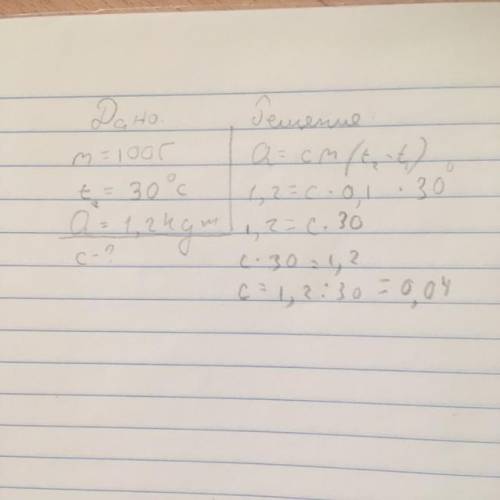 Дано.
m = 100г
t₂ = 30°c
Q = 1,2кдж
c - ?
Решение
Q = cm(t₂ - t₁)
1,2 = c · 0,1 · 30°
1,2 = c · 30
c · 30 = 1,2
c = 1,2 : 30 = 0,04